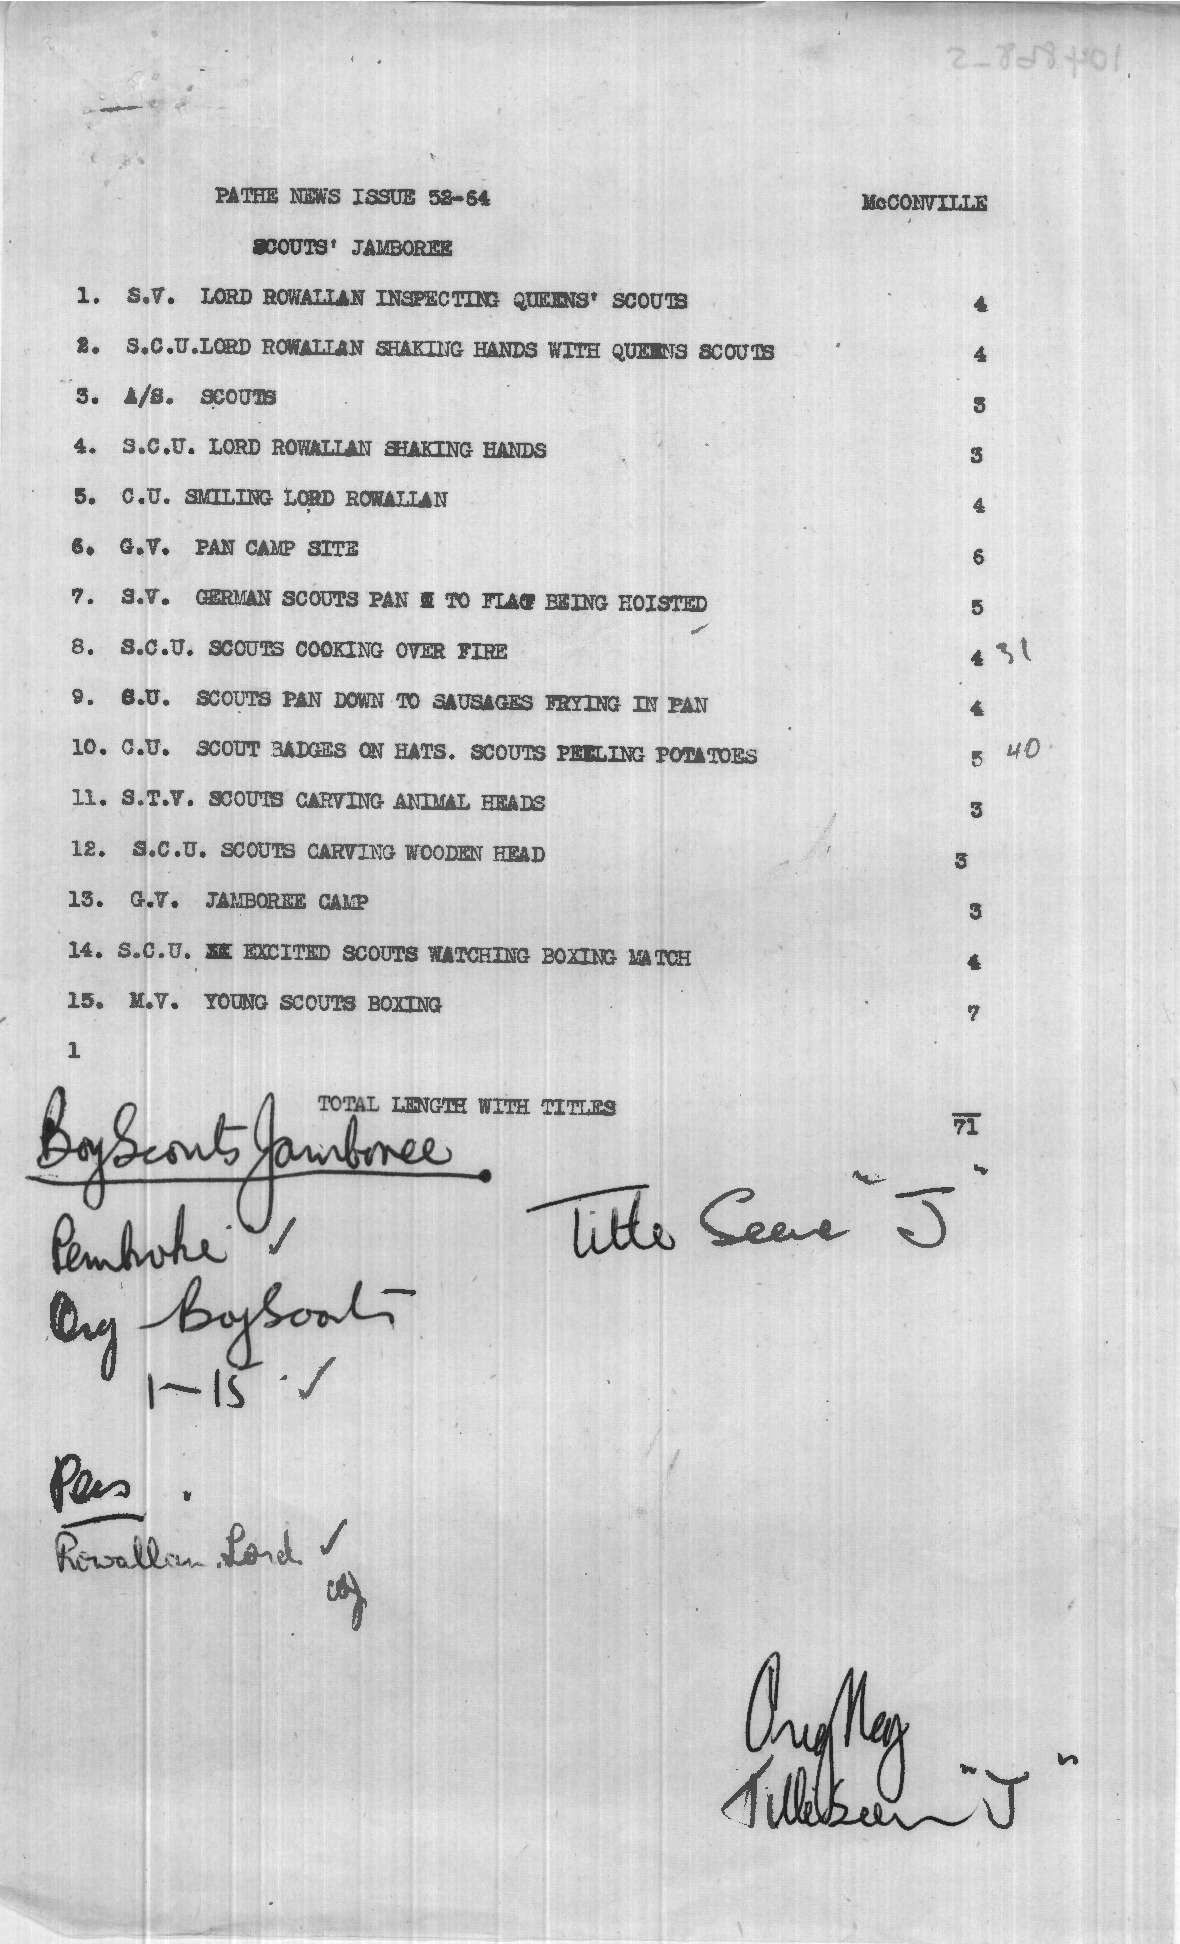 104868-5
PATHE NEWS ISSUE 52-64 McCONVILLE
SCOUTS' JAMBOREE
1. S.V. LORD ROWALLAN INSPECTING QUEENS' SCOUTS 4
2. S.C.U.LORD ROWALLAN SHAKING HANDS WITH QUEENS SCOUTS 4
3. A/S. SCOUTS 3
4. S.C.U. LORD ROWALLAN SHAKING HANDS 3
5. C.U. SMILING LORD ROWALLAN 4
6. G.V. PAN CAMP SITE 6
7. S.V. GERMAN SCOUTS PAN TO FLAG BEING HOISTED 5
8. S.C.U. SCOUTS COOKING OVER FIRE 4 31
9. C.U. SCOUTS PAN DOWN TO SAUSAGES FRYING IN PAN 4
10. C.U. SCOUT BADGES ON HATS. SCOUTS PEELING POTATOES 5 40
11. S.T.V. SCOUTS CARVING ANIMAL HEADS 3
12. S.C.U. SCOUTS CARVING WOODEN HEAD 3
13. G.V. JAMBOREE CAMP 3
14. S.C.U. EXCITED SCOUTS WATCHING BOXING MATCH 4
15. M.V. YOUNG SCOUTS BOXING 7
1
TOTAL LENGTH WITH TITLES 71
Boy Scouts Jamboree
Title Seeve "J"
Pembroke ✓
Org - Boy Scouts
1-15 ✓
Pers
Rowallan. Lord ✓
Orig Neg
"J"